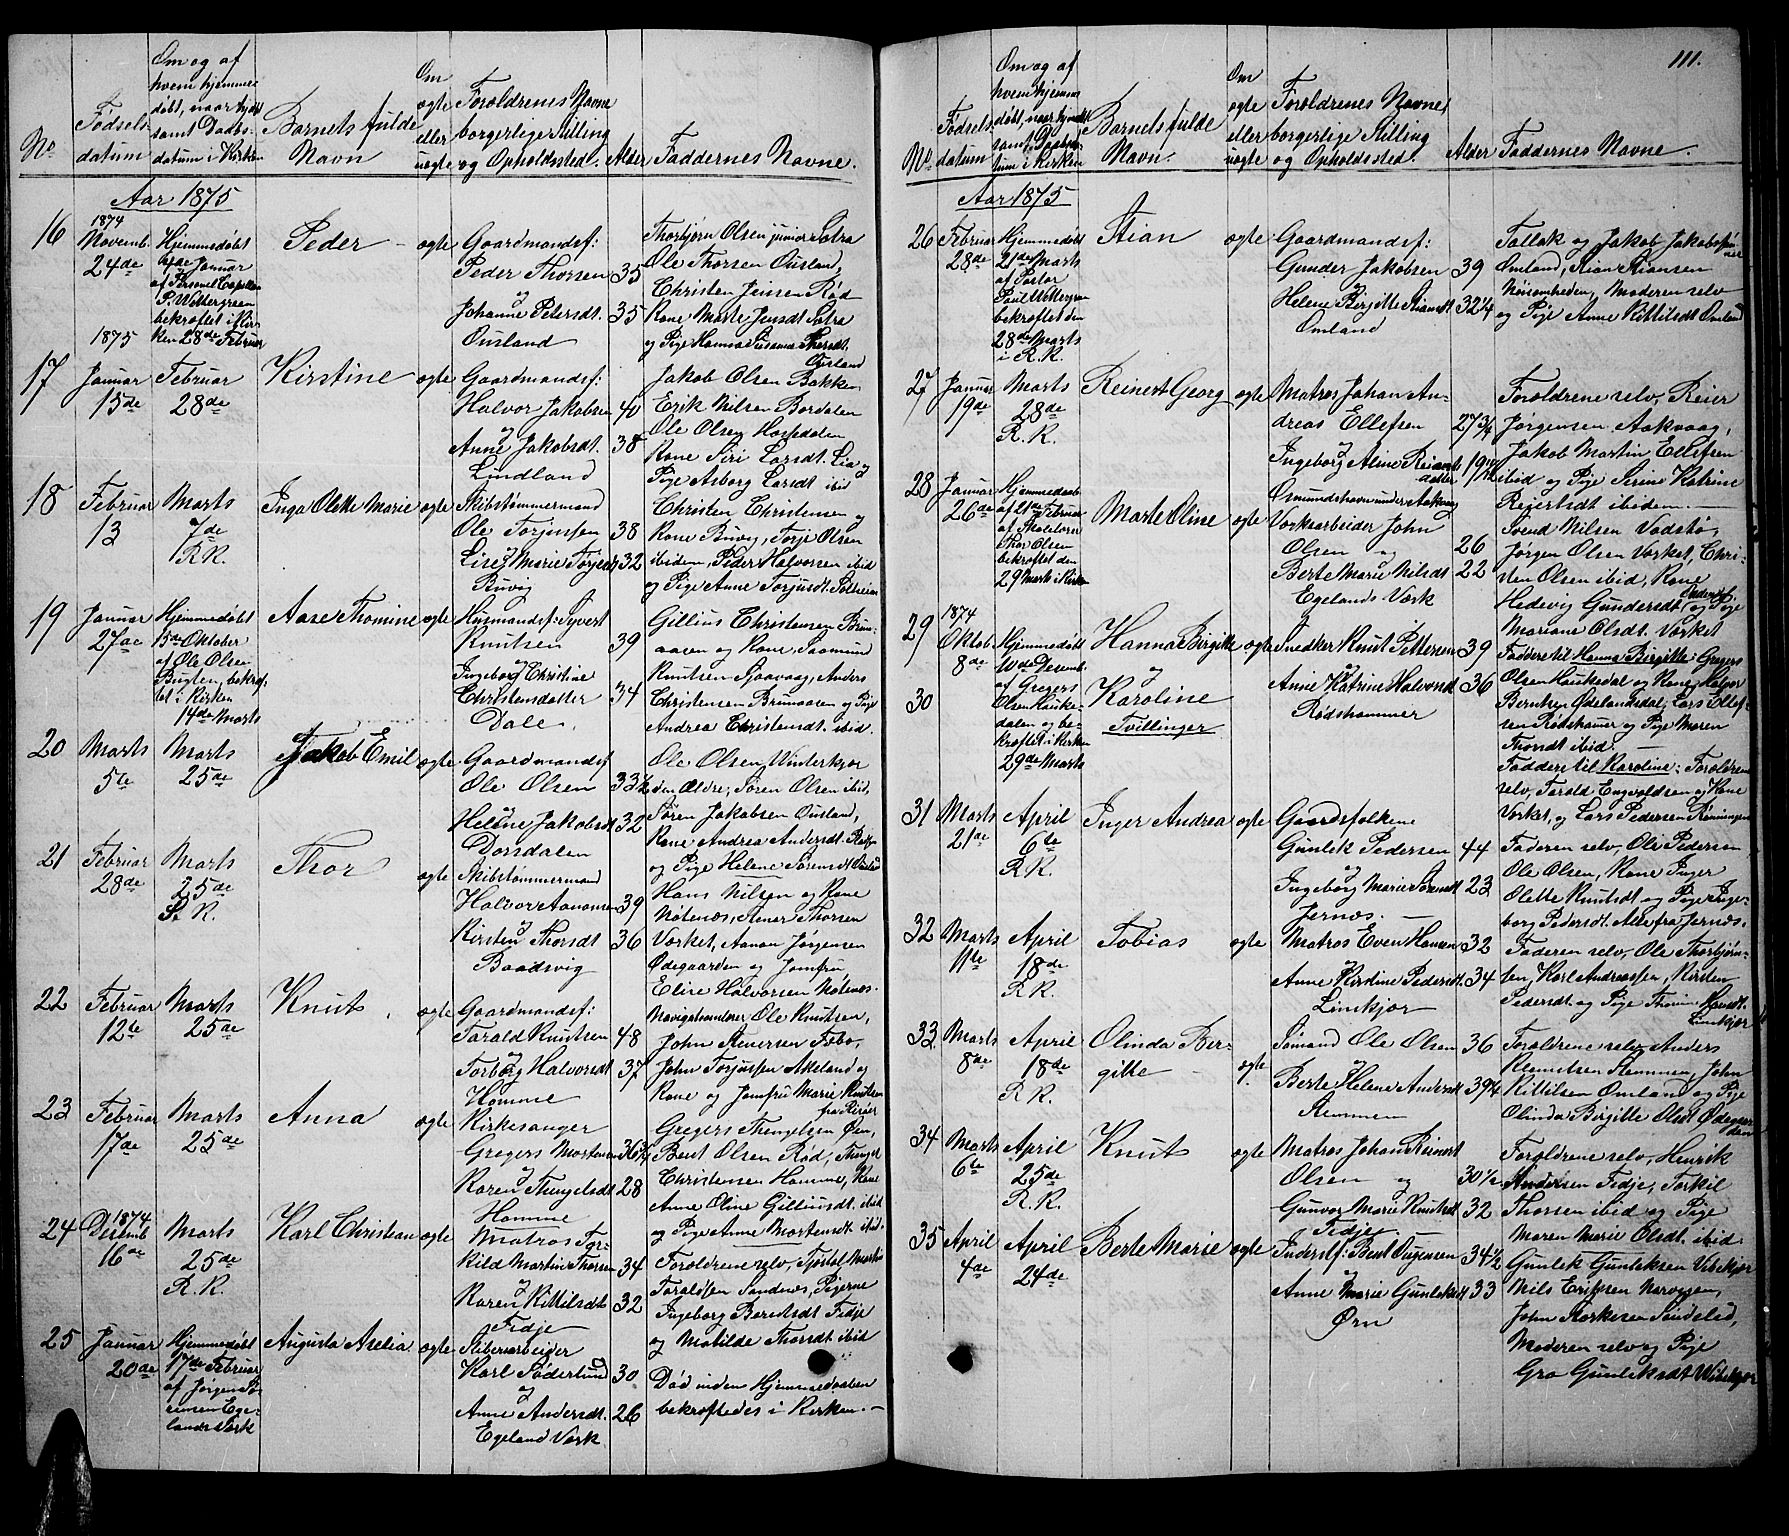 111.
No
Fødsels-
datum
Om og af
hvem hjemme-
døbt, naar hjdt
samt Daabs-
datum i Kirken
Barnets fulde
Navn
Om
ægte
eller
uægte
Forældrenes Navne
borgerlige Stilling
og Opholdssted.
Alder
Faddernes Navne.
Aar 1875
16
1874
Novemb.
24de
Hjemmedøbt
4de Januar
af Personel Capellan
P. Wettergreen
bekræftet i Kir-
ken 28de Februar
Peder
ægte
Gaardmandsf:
Peder Thorsen 35
og
Johanne Petersdt. 35
Ousland
Thorbjørn Olsen junior Sætra
Ole Thorsen Ousland,
Christen Jensen Rød
Kone Marte Jensdt Sætra
og Pige Hanna Susanna Thorsdt.
Ousland
17
1875
Januar
15de
Februar
28de
Kirstine
ægte
Gaardmandsf:
Halvor Jakobsen 40
og
Anne Jakobsdt. 38
Lindland
Jakob Olsen Bakken
Erik Nilsen Bordalen
Ole Olsen Hasledalen
Kone Siri Larsdt. Lia og
Pige Asborg Larsdt ibid
18
Februar
13
Marts
7de
R.K.
Inga Olette Marie
ægte
Skibstømmermand
Ole Torjussen 38
og
Lise Marie Torjusdt 32
Buvig
Christen Christensen og
Kone Buvig, Torje Olsen
ibidem, Peder Halvorsen ibid
og Pige Anne Torjusdt. Solheim
19
Januar
27de
Hjemmedøbt
15de Oktober
af Ole Olsen
Bugten, bekræf-
tet i Kirken
14de Marts
Aase Thomine
ægte
Husmandsf: Syvert
Knutsen 39
og
Ingeborg Christine
Christensdatter 34
Dale
Gillius Christensen Brun-
aaren og Kone, Saamund
Knutsen Sjaavaag, Anders
Christensen Brunaaren og Pige
Andrea Christensdt. ibid.
20
Marts
5te
Marts
25de
Jakob Emil
ægte
Gaardmandsf
Ole Olsen 33½
og
Helene Jakobsdt 32
Dorsdalen
Ole Olsen Vinterkjær
den Ældre, Søren Olsen ibid,
Søren Jakobsen Ousland,
Kone Andrea Andersdt.
og Pige Helene Sørensdt Ousland
21
Februar
28de
Marts
25de
S. K.
Thor
ægte
Skibstømmermand
Halvor Aanonsen 39
og
Kirsten Thorsdt 36
Baadsvig
Hans Nilsen og Kone
Nøtenæs, Einar Thorsen
Værket, Aanon Jørgensen
Ødegaarden og Jomfru
Elise Halvorsen Nøtenæs.
22
Februar
12te
Marts
25de
Knut
ægte
Gaardmandsf:
Tarald Knutsen 48
og
Torborg Halvorsdt 37
Homme
Navigationslærer Ole Knutsen,
John Steversen Febo,
John Torjussen Akeland og
Kone og Jomfru Marie Knutsen
fra Risør
23
Februar
17de
Marts
25de
Anna
ægte
Kirkesanger
Gregers Mortensen 36¾
og
Karen Thengelsdt 28
Homme
Gregers Thengelsen Øen,
Bent Olsen Rød, Thengel
Christensen Homme, Kone
Anne Oline Gilliusdt. ibid
og Pige Anne Mortensdt. ibid.
24
1874
Desemb
16de
Marts
25de
R.K.
Karl Christian
ægte
Matros Tor-
kild Martin Thorsen 34
og
Karen Kittilsdt 32
Fidje
Forældrene selv, Tjøstel Martin
Taraldsen Sandnes, Pigerne
Ingeborg Berntsdt Fidje
og Matilde Thorsdt ibid
25
Januar
20de
Hjemmedøbt
17de Februar
af Jørgen Sø-
rensen Ege-
lands Værk
Augusta Aselia
ægte
Støberiarbeider
Karl Söderlund 30
og
Anne Andersdt. 26
Egeland Værk
Død inden Hjemmedaaben
bekræftedes i Kirken.
No.
Fødsels-
datum
Om og af
hvem hjemme-
døbt, naar hjmdt
samt Daabsda-
tum i Kirken
Barnets fulde
Navn.
Om
ægte
eller
uægte
Forældrenes Navne,
borgerlige Stilling
og Opholdssted.
Alder
Faddernes Navne.
Aar 1875
26
Februar
28de
Hjemmedøbt
21de Marts
af Pastor
Paul Wettergreen
bekræftet den
28de Marts
i R.K.
Stian
ægte
Gaardmandsf:
Gunder Jakobsen 39
og
Helene Birgitte Stiansdt 32¼
Omland
Tallak og Jakob Jakobsønner
Omland, Stian Stiansen
Nøisomheden, Moderen selv
og Pige Anne Kittilsdt Omland
27
Januar
19de
Marts
28de
R.K.
Reinert Georg
ægte
Matros Johan An-
dreas Ellefsen 27¾
og
Ingeborg Aline Reinerts-
datter 19
Osmundshavn under Aakvaag
Forældrene selv, Reier
Jørgensen Aakvaag,
Jakob Martin Ellefsen
ibid og Pige Serine Katrine
Reiersdt ibidem.
28
Januar
26de
Hjemmedaab
af 21de Februar
af Skolelærer
Thor Olsen
bekræftet den
29 Marts i Kirken
Marte Oline
ægte
Værksarbeider John
Olsen 26
og
Berte Marie Nilsdt 22
Egelands Værk
Svend Nilsen Vadstø,
Jørgen Olsen Værket, Chri-
sten Olsen ibid, Kone
Hedevig Gundersdt. og Pige
Mariane Olsdt. Værket
29
1874
Oktob
8de
30
Hjemmedøbt
10de Desemb.
af Gregers
Olsen Hauke-
dalen og be-
kræftet i Kirken
29de Marts
Hanna Birgitte
og
Karoline
Tvillinger
ægte
Snedker Knut Pettersen 39
og
Anne Katrine Halvorsdt 36
Rødshammer
Fadderetil Hanna Birgitte: Gregers
Olsen Haukedal og Kone, Halvor
Berntsen Ødelandsdal, Lars Ellef-
sen Rødshamer og Pige Maren
Thorsdt ibid.
Faddere til Karoline: Forældrene
selv, Tarald Engvoldsen og Kone
Værket, og Lars Pedersen Rønningen
31
Marts
21de
April
6te
R.K.
Inger Andrea
ægte
Gaardsfolkene
Gunlek Pedersen 44
og
Ingeborg Marie Sørensdt 23
Jernæs.
Faderen selv, Ole Pedersen
Ole Olsen, Kone Inger
Olette Knutsdt og Pige Inge-
borg Pedersdt. Alle fra Jernæs.
32
Marts
11te
April
18de
R.K.
Tobias
ægte
Matros Even Hansen 32
Anne Kirstine Pedersdt. 34
Linkjær
Faderen selv, Ole Thorbjørn-
sen, Karl Andreassen, Kirsten
Pedersdt. og Pige Thomine Hansdt.
Linkjær
33
Marts
8de
April
18de
R.K.
Olinda Bir-
gitte
ægte
Sømand Ole Olsen 36
og
Berte Helene Andersdt 39¼
Stemmen
Forældrene selv, Anders
Klemetsen Stemmen, John
Kittilsen Omland og Pige
Olinda Birgitte Olsdt Ødegaar-
den
34
Marts
6te
April
25de
R.K.
Knut
ægte
Matros Johan Reinert
Olsen 30½
og
Gunvor Marie Knutsdt 32
Fidje
Forældrene selv, Henrik
Andersen Fidje, Torkil
Thorsen ibid og Pige
Maren Marie Olsdt. ibid.
35
April
4de
April
24de
Berte Marie
ægte
Inderstf: Bent Jørgensen 34½
og
Anne Marie Gunleksdt 33
Ørn
Gunlek Gunleksen Vibekjær
Nils Eriksen Narvesen,
John Størkersen Sundslid,
Moderen selv og Pige
Gro Gunleksdt Wibekjær